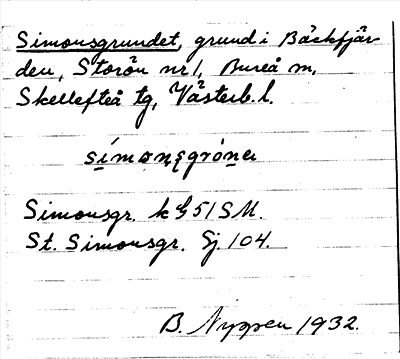 Simonsgrundet, grund i Bäckfjär-
den, Storön nr 1, Bureå sn,
Skellefteå tg, Västerb. l.
Simonsgr. k G 51 SM.
St. Simonsgr. Sj. 104.
B. Nygren 1932.